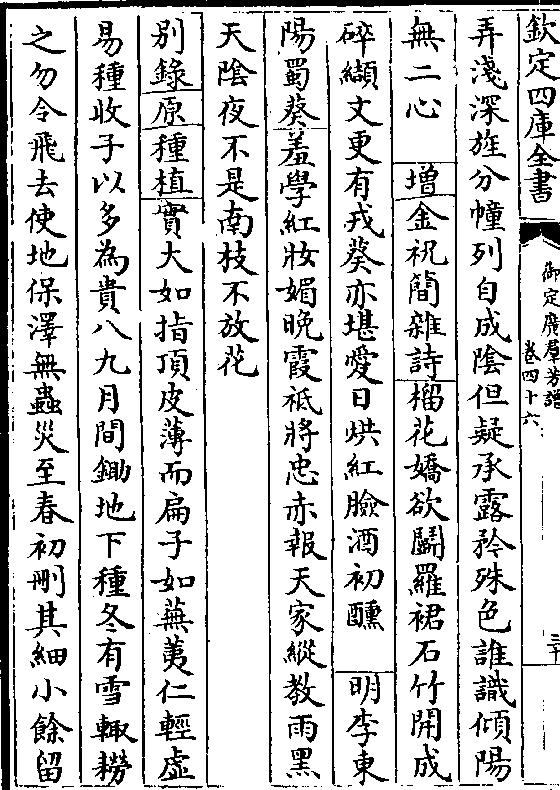 欽定四庫全書
御定廣羣芳譜
卷四十六
三十
弄淺深旌分幢列自成陰但疑承露矜殊色誰識傾陽
無二心 增金祝簡雜詩榴花嬌欲鬭羅裙石竹開成
碎纈文更有戎葵亦堪愛日烘紅臉酒初醺 明李東
陽蜀葵羞學紅妝媚晚霞祇將忠赤報天家縱教雨黑
天陰夜不是南枝不放花
别錄原種植實大如指頂皮薄而扁子如蕪荑仁輕虛
易種收子以多為貴八九月間鋤地下種冬有雪輙耮
之勿令飛去使地保澤無蟲災至春初刪其細小餘留